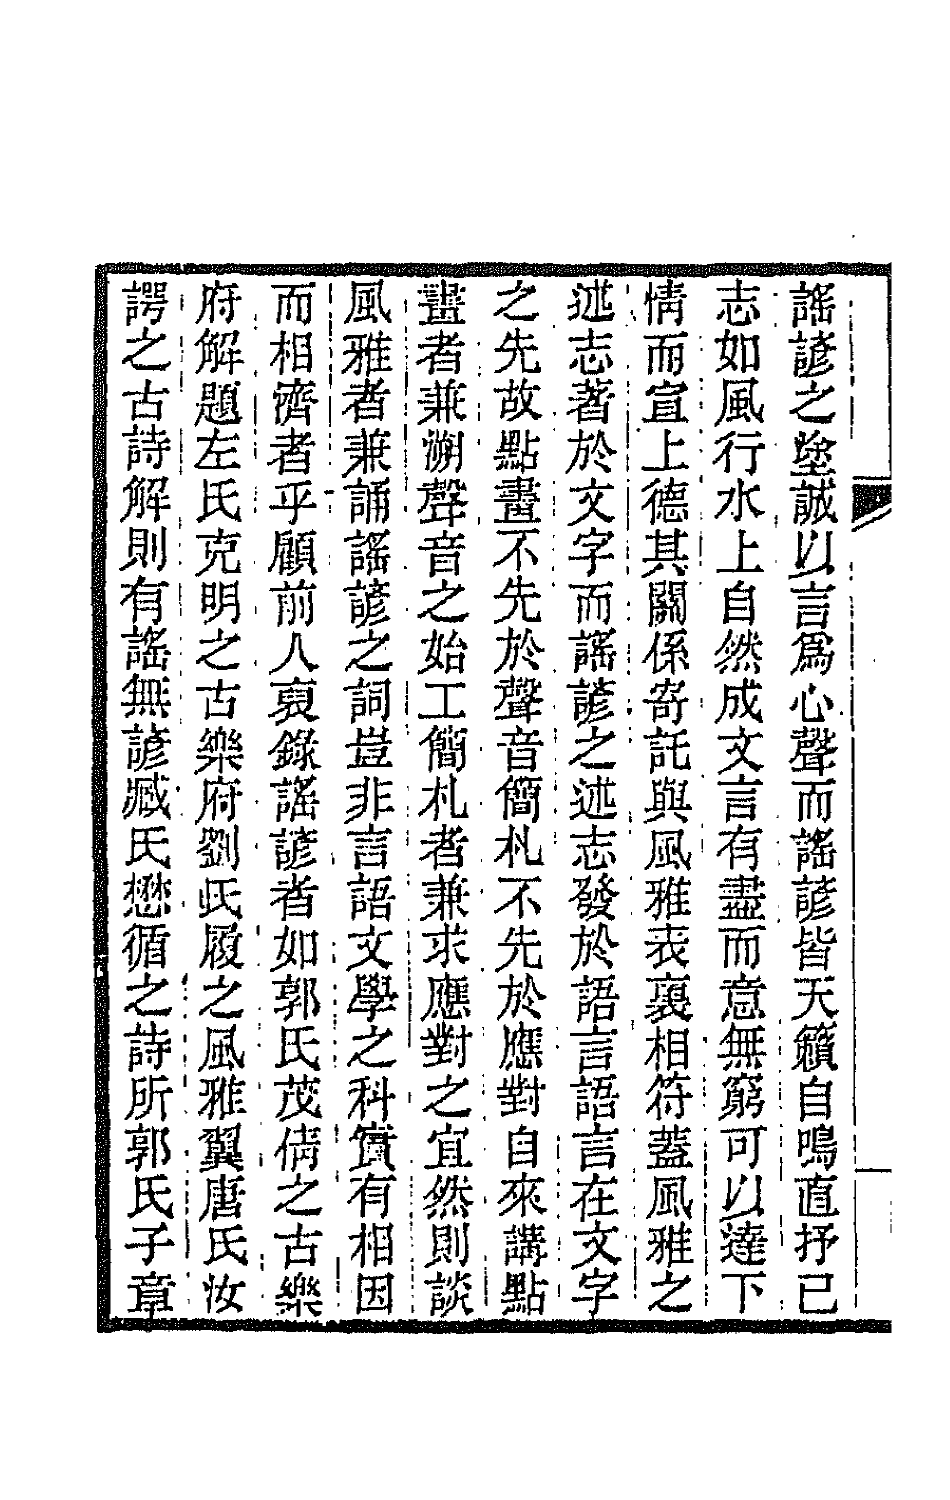 謠諺之塗誠以言爲心聲而謠諺皆天籟自鳴直抒已
志如風行水上自然成文言有盡而意無窮可以達下
情而宣上德其關係寄託與風雅表裏相符蓋風雅之
述志著於文字而謠諺之述志發於語言語言在文字
之先故點畫不先於聲音簡札不先於應對自來講點
畫者兼溯聲音之始工簡札者兼求應對之宜然則談
風雅者兼誦謠諺之詞豈非言語文學之科實有相因
而相濟者乎顧前人裒錄謠諺者如郭氏茂倩之古樂
府解題左氏克明之古樂府劉氏履之風雅翼唐氏汝
諤之古詩解則有謠無諺臧氏懋循之詩所郭氏子章